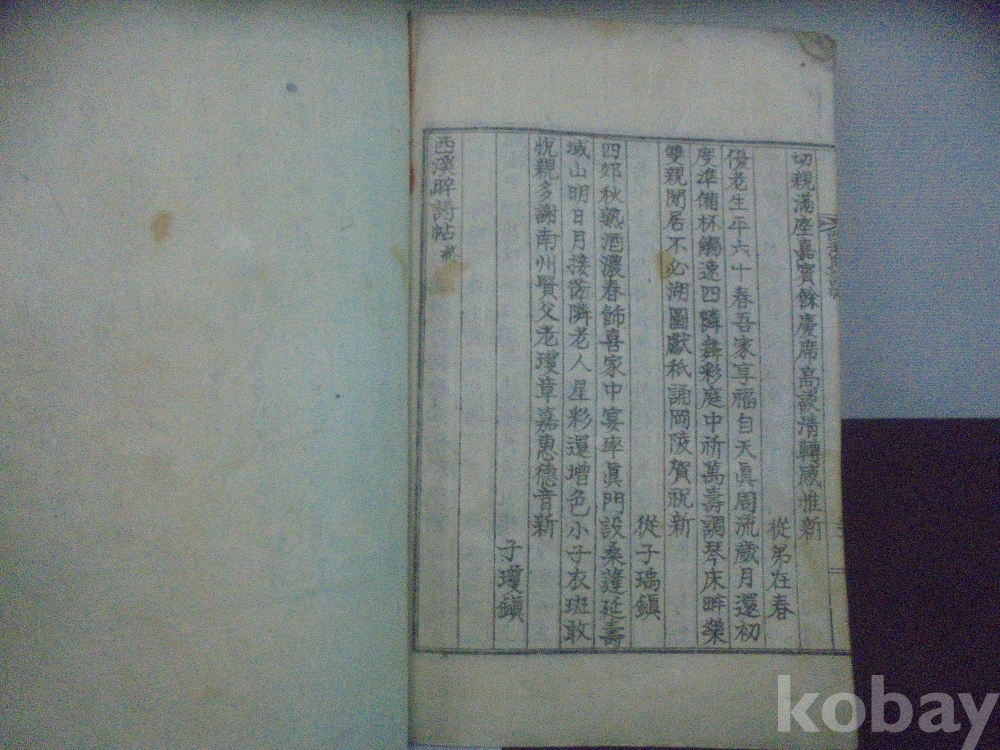 切親滿座嘉賓餘慶席高談清轉感雅新
從弟在春
優老生平六十春吾家享福自天眞周流歲月還初
度準備杯觴速四隣舞彩庭中祈萬壽調琴床畔樂
雙親閒居不必湖圖獻秪誦岡陵賀祝新
從子瑀鎭
四郊秋熟酒濃春飾喜家中宴率眞門設桑蓬延壽
域山明日月接芳隣老人星彩還增色小子衣斑敢
悅親多謝南州賢父老瓊章嘉惠德音新
子瓊鎭
西溪晬詩帖終
kobay